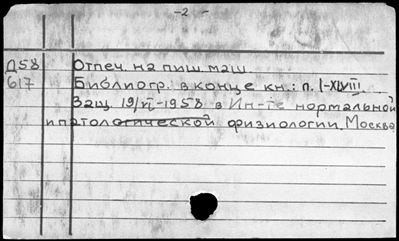 -2-
Д58 Отпеч. на пиш. маш.
617 Библиогр. в конце кн.: п. I-XLVIII
Защ. 19/VI-1958 в Ин-те нормальной
и патологической физиологии. Москва